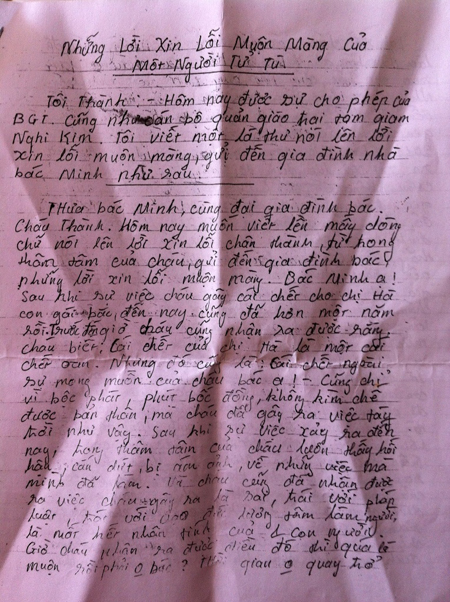 Những Lời Xin Lỗi Muộn Màng Của
Một Người Tử Tù
Tôi Thành - Hôm nay được sự cho phép của
BGT. Cũng như cán bộ quản giáo hai tạm giam
Nghi Kim. Tôi viết một lá thư nói lên lời
xin lỗi muộn màng, gửi đến gia đình nhà
bác Minh như sau.
Thưa bác Minh, cùng đại gia đình bác.
Cháu Thành. Hôm nay muốn viết lên mấy dòng
chữ nói lên lời xin lỗi chân thành, từ trong
thâm tâm của cháu, gửi đến gia đình bác
những lời xin lỗi muộn màng. Bác Minh ạ!
Sau khi sự việc cháu gây cái chết cho chị Hà
con gái bác, đến nay cũng đã hơn một năm
rồi. Trước giờ cháu cũng nhận ra được rằng.
cháu biết. Cái chết của chị Hà là một cái
chết oan. Nhưng đó cũng là cái chết ngoài
sự mong muốn của cháu bác ạ! - Cũng chỉ
vì bộc phát, phút bốc đồng, không kìm chế
được bản thân, mà cháu đã gây ra việc tày
trời như vậy. Sau khi sự việc xảy ra đến
nay, trong thâm tâm của cháu luôn thấy hối
hận, cắn dứt, bị ám ảnh, về những việc mà
mình đã làm. Và cháu cũng đã nhận được
ra việc cháu gây ra là sai trái với pháp
luật, trái với đạo đức lương tâm làm người,
là mất hết nhân tính của 1 con người.
Giờ cháu nhận ra được điều đó thì quá
muộn rồi phải o bác? Thời gian o quay trở